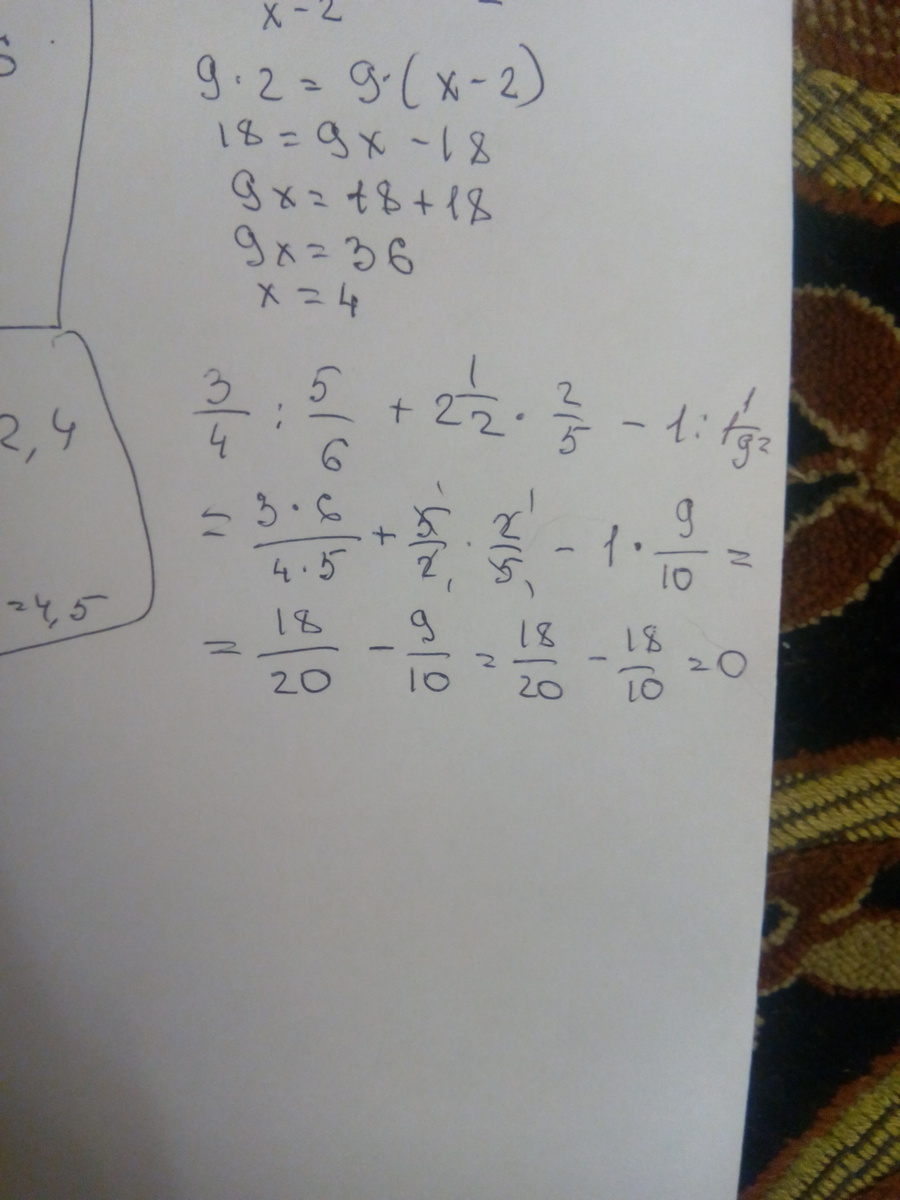 x-2
9·2=9·(x-2)
18=9x-18
9x=18+18
9x=36
x=4
2,4
=4,5
3/4 : 5/6 + 2 1/2 · 2/5 - 1 : 1 1/9 =
= 3·6/4·5 + 5/2 · 2/5 - 1 · 9/10 =
= 18/20 - 9/10 = 18/20 - 18/10 = 0